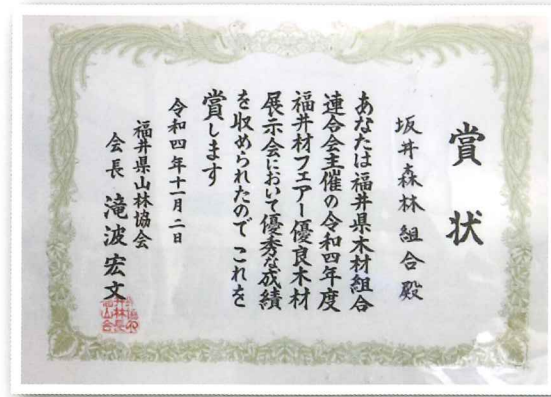 賞状
坂井森林組合殿
あなたは福井県木材組合
連合会主催の令和四年度
福井材フェアー優良木材
展示会において優秀な成績
を収められたのでこれを
賞します
令和四年十一月二日
福井県山林協会
会長 滝波宏文